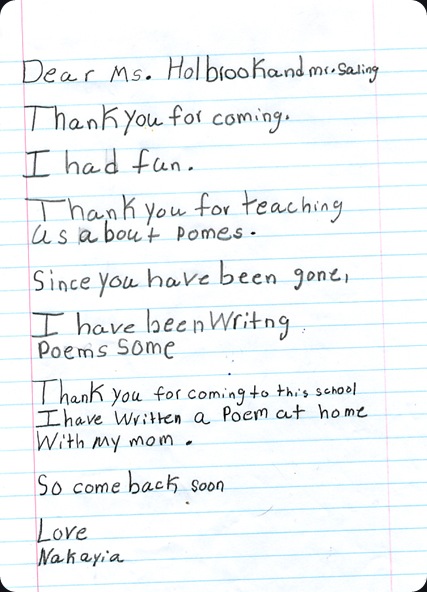 Dear Ms. Holbrook and mr. Saling
Thank you for coming.
I had fun.
Thank you for teaching
us about pomes.
Since you have been gone,
I have been Writng
Poems some
Thank you for coming to this school
I have Written a Poem at home
With my mom.
So come back soon
Love
Nakayia